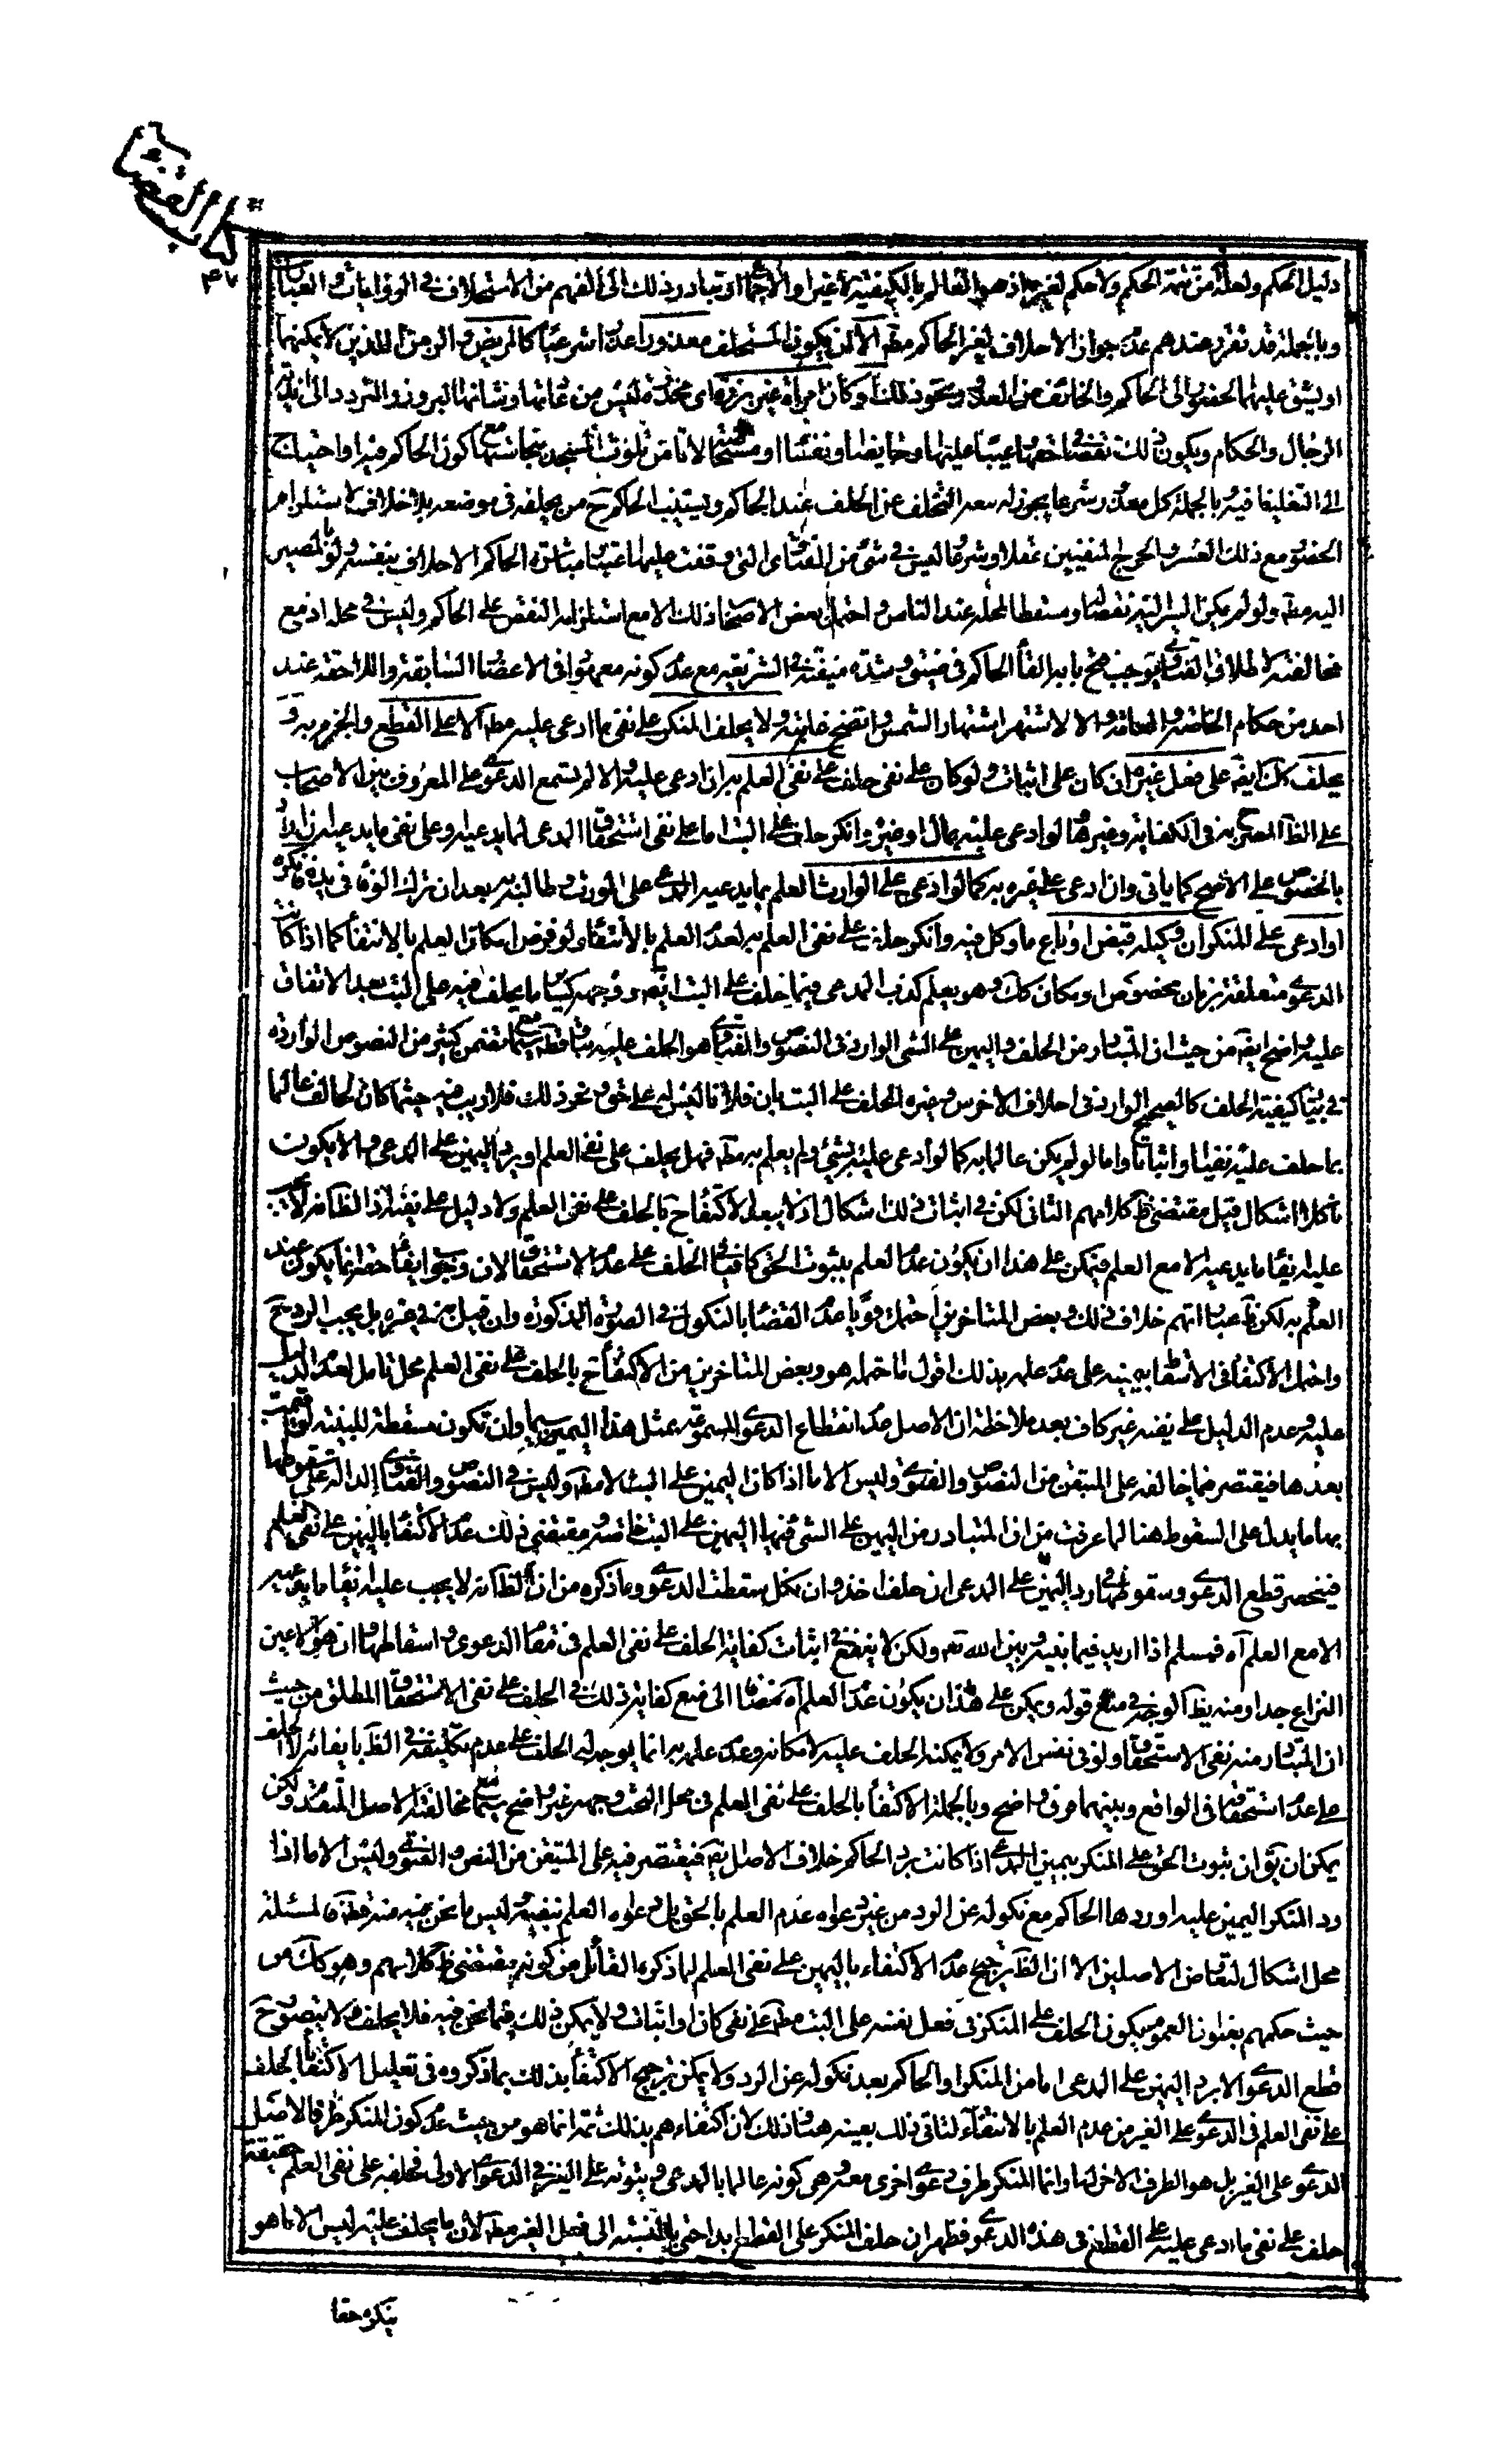 كتاب القضاء
٤٧
دليل الحكم ولعله من تتمة الحكم ولا حكم لغيره اذ هو العالم بالكيفية لا غير او الاجماع او تبادر ذلك الى الفهم من الاستحلاف في الروايات والعبارات
وبالجملة قد تقرر عندهم عدم جواز الاحلاف لغير الحاكم مطم الا ان يكون المستحلف معذورا عذرا شرعيا كالمريض والزمن اللذين لا يمكنهما
او يشق عليهما الحضور الى الحاكم والخائف من العدو ونحو ذلك او كان امرأة غير برزة اى مخدرة ليس من عادتها وشانها البروز والتردد الى اندية
الرجال والحكام ويكون ذلك نقصا عيبا عليها او حايضا او نفسا او مستحاضة لا تامن تلويث المسجد بنجاستها مع كون الحاكم فيه او احتياج
الى التغليظ فيه وبالجملة كل معذور شرعا يجوز له معه التخلف عن الحلف عند الحاكم ويستنيب الحاكم ح من يحلفه في موضعه بلا خلاف لاستلزام
الحضور مع ذلك العسر والحرج المنفيين عقلا وشرعا وليس في شئ من الفتاوى التي وقفت عليها اعتبار مباشرة الحاكم الاحلاف بنفسه ولو بالمصير
اليه مطم ولو لم يكن السير اليه نقصا ومسقطا لمحله عند الناس واحتمل بعض الاصحاب ذلك الا مع استلزامه النقص على الحاكم وليس في محله اذ مع
مخالفته لاطلاق الفتاوى يوجب فتح بابه القاء الحاكم في ضيق وشدة منفية في الشريعة مع عدم كونه معهودا في الاعصار السابقة واللاحقة عند
احد من حكام الخاصة والعامة والا لاشتهر اشتهار الشمس واتضح غايته ولا يحلف المنكر على نفى ما ادعى عليه مطم الا على القطع والجزم به و
يحلف كل ايضا على فعل غيره ان كان على اثبات ولو كان على نفى حلف على نفى العلم به ان ادعى عليه والا لم تسمع الدعوى على المعروف بين الاصحاب
على الظ المصرح به في الكفاية وغيرها لو ادعى عليه بمال او غيره وانكر حلف على البت اما على نفى استحقاق المدعى لما يدعيه او على نفى ما يدعيه
بالخصوص على الاصح كما ياتى وان ادعى على غيره به كما لو ادعى على الوارث العلم بما يدعيه المدعى على المورث وطالبه به بعد ان ترك الوفاء في يده فانكره
او ادعى على المنكر ان وكيله قبض او باع ما وكل فيه وانكر حلف على نفى العلم به لعدم العلم بالانتفاء ولو فرض امكان العلم بالانتفاء كما اذا كانت
الدعوى متعلقة بزمان مخصوص او مكان كك وهو يعلم كذب المدعى فيما حلف على البت ايضا ووجه كيساير ما يحلف فيه على البت بعد الاتفاق
عليه واضح ايضا من حيث ان المتبادر من الحلف واليمين على الشئ الوارد في النصوص والفتاوى هو الحلف عليه بتا وقطعا مع تضمن كثير من النصوص الواردة
في بيان كيفية الحلف كالصحيح الوارد في احلاف الاخرس وغيره الحلف على البت بان فلانا ليس له على حق ونحو ذلك فلا ريب فيه حيثما كان الحالف عالما
بما حلف عليه نفيا واثباتا واما لو لم يكن عالما به كما لو ادعى عليه بشئ ولم يعلم به مطم فهل يحلف على نفى العلم او يرد اليمين على المدعى والا يكون
ناكلا اشكال قيل مقتضى ظ كلامهم الثاني لكن في اثبات ذلك اشكال اذ لا يبعد الاكتفاء ح بالحلف على نفى العلم ولا دليل على نفيه اذ الظاهر انه لا يجب
عليه ايفاء ما يدعيه الا مع العلم فيمكن على هذا ان يكون عدم العلم بثبوت الحق كافيا في الحلف على عدم الاستحقاق لان وجوب ايفاء حقه انما يكون عند
العلم به لكن ظ عباراتهم خلاف ذلك وبعض المتاخرين احتمل قويا عدم القضاء بالنكول في الصورة المذكورة وان قيل به في غيره بل يجب الرد ح
واحتمل الاكتفاء في الاسقاط بيمينه على عدم علمه بذلك اقول ما احتمله هو وبعض المتاخرين من الاكتفاء ح بالحلف على نفى العلم محل تامل لعدم الدليل
عليه وعدم الدليل على نفيه غير كاف بعد ملاحظة ان الاصل عدم انقطاع الدعوى المسموعة بمثل هذا اليمين سيما وان تكون مسقطة للبينة لو اقيمت
بعدها فيقتصر فيما خالفه على المتيقن من النصوص والفتوى وليس الا ما اذا كان اليمين على البت لا مطم وليس في النصوص والفتاوى الدالة على سقوطها
بها ما يدل على السقوط هنا لما عرفت من ان المتبادر من اليمين على الشئ فيها اليمين على البت خاصة ومقتضى ذلك عدم الاكتفاء باليمين على نفى العلم
فينحصر قطع الدعوى وسقوطها في رد اليمين على المدعى ان حلف اخذ وان نكل سقطت الدعوى وما ذكره من ان الظ انه لا يجب عليه ايفاء ما يدعيه
الا مع العلم آه فمسلم اذا اريد فيما بينه وبين الله تعم ولكن لا ينفع في اثبات كفاية الحلف على نفى العلم في مقام الدعوى واسقاطها وان هو الا عين
النزاع جدا ومنه يظ الوجه في منع قوله ويمكن على هذا ان يكون عدم العلم آه مضافا الى منع كفاية ذلك في الحلف على نفى الاستحقاق المطلق من حيث
ان المتبادر منه نفى الاستحقاق ولو في نفس الامر ولا يمكنه الحلف عليه لامكانه وعدم علمه به انما يوجد له الحلف على عدم تكليفه في الظ بايفائه لا الحلف
على عدم استحقاقه في الواقع وبينهما فرق واضح وبالجملة الاكتفاء بالحلف على نفى العلم في محل البحث وجهه غير واضح سيما مع مخالفته الاصل المتقدم ولكن
يمكن ان يقو ان ثبوت الحق على المنكر بيمين المدعى اذا كانت برد الحاكم خلاف الاصل ايضا فيقتصر فيه على المتيقن من النص والفتوى وليس الا ما اذا
رد المنكر اليمين عليه او ردها الحاكم مع نكوله عن الرد من غير دعواه عدم العلم بالحق بل دعواه العلم بنفيه وليس ما نحن فيه منه قطعا فالمسئلة
محل اشكال لتعارض الاصلين الا ان الظ ترجيح عدم الاكتفاء باليمين على نفى العلم لما ذكره القائل من كونه مقتضى ظ كلامهم وهو كك من
حيث حكمهم بعنوان العموم بكون الحلف على المنكر في فعل نفسه على البت مطم على نفى كان او اثبات ولا يمكن ذلك فيما نحن فيه فلا يحلف ولا يتصور ح
قطع الدعوى الا برد اليمين على المدعى اما من المنكر او الحاكم بعد نكوله عن الرد ولا يمكن ترجيح الاكتفاء بذلك بما ذكروه في تعليل الاكتفاء بالحلف
على نفى العلم في الدعوى على الغير من عدم العلم بالانتفاء لتاتى ذلك بعينه هنا وذلك لان اكتفاءهم بذلك ثمة انما هو من حيث عدم كون المنكر طرفا لاصل
الدعوى على الغير بل هو الطرف الاخر لها وانما المنكر طرف دعوى اخرى معه وهى كونه عالما بالمدعى وثبوته على الغير في الدعوى الاولى فحلفه على نفى العلم حقيقة
حلف على نفى ما ادعى عليه على القطع في هذه الدعوى فظهر ان حلف المنكر على القطع ابدا حتى بالنسبة الى فعل الغير مطم لان ما يحلف عليه ليس الا ما هو
ينكره حقا